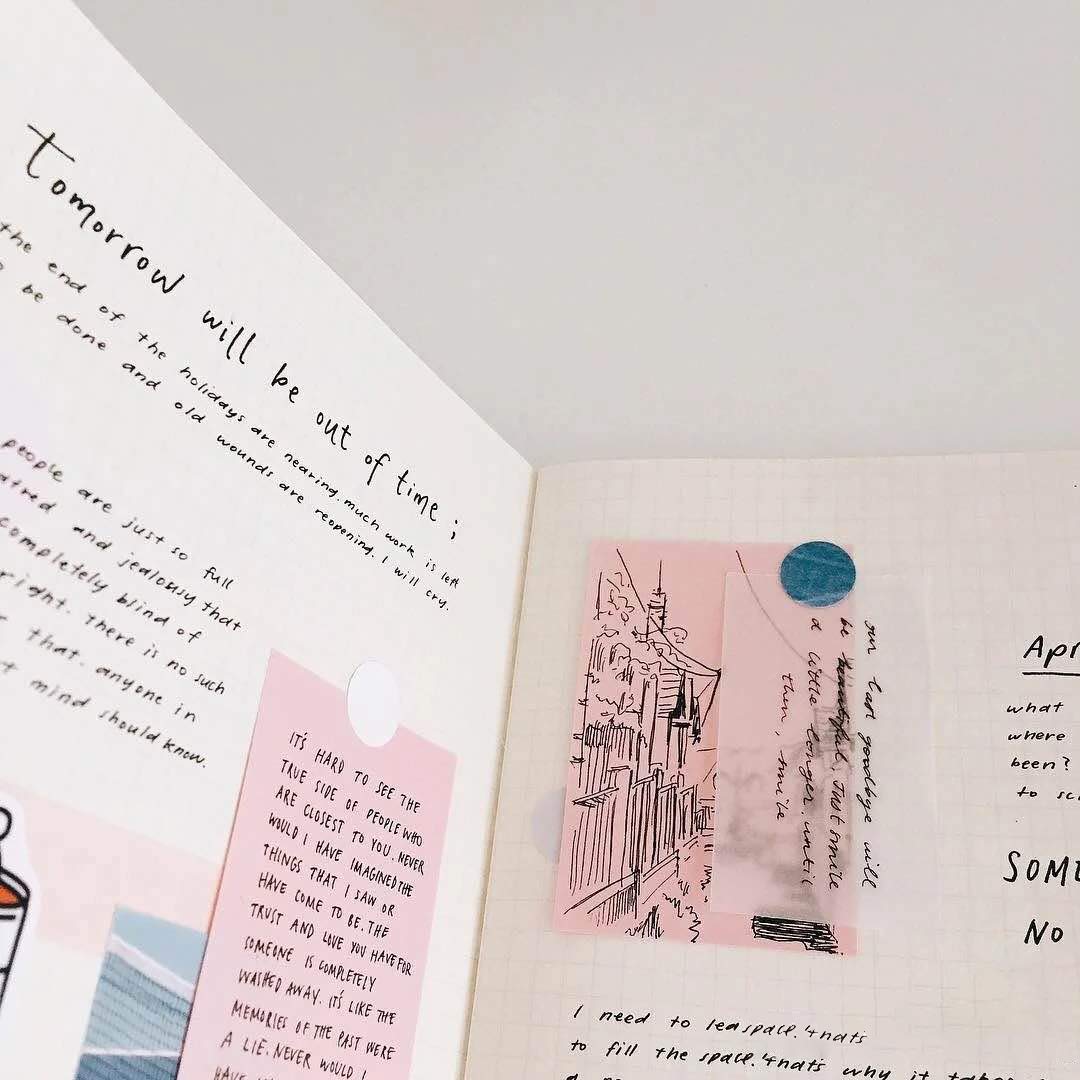 Tomorrow will be out of time;
the end of the holidays are nearing. much work is left
be done and old wounds are reopening. I will cry.
people are just so full
and jealousy that
completely blind of
right. there is no such
that. anyone in
mind should know.
IT'S HARD TO SEE THE
TRUE SIDE OF PEOPLE WHO
ARE CLOSEST TO YOU. NEVER
WOULD I HAVE IMAGINED THE
THINGS THAT I SAW OR
HAVE COME TO BE. THE
TRUST AND LOVE YOU HAVE FOR
SOMEONE IS COMPLETELY
WASHED AWAY. IT'S LIKE THE
MEMORIES OF THE PAST WERE
A LIE. NEVER WOULD I
our last goodbye will
be beautiful. Just smile
a little longer. until
then, smile
what
where
been?
to
NO
I need to
to fill the space. why it